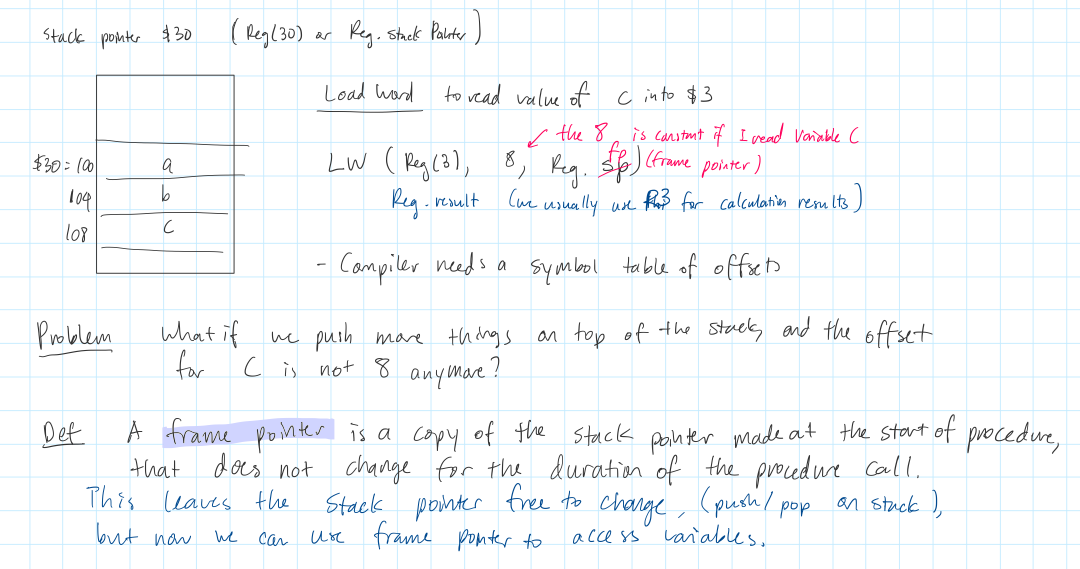 Stack pointer $30 (Reg(30) or Reg. Stack Pointer)
Load Word to read value of C into $3
the 8 is constant if I read variable C
$30 = 100 a
LW (Reg(3), 8, Reg. sp) fp (frame pointer)
104 b
Reg. result (we usually use R3 for calculation results)
108 C
- Compiler needs a symbol table of offsets
Problem What if we push more things on top of the stack, and the offset
for C is not 8 anymore?
Def A frame pointer is a copy of the stack pointer made at the start of procedure,
that does not change for the duration of the procedure call.
This leaves the Stack pointer free to change, (push/pop on stack),
but now we can use frame pointer to access variables.